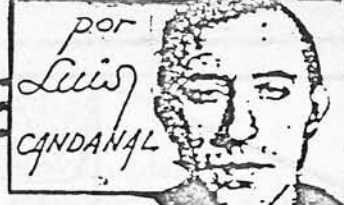 por
Luis
CANDANAL